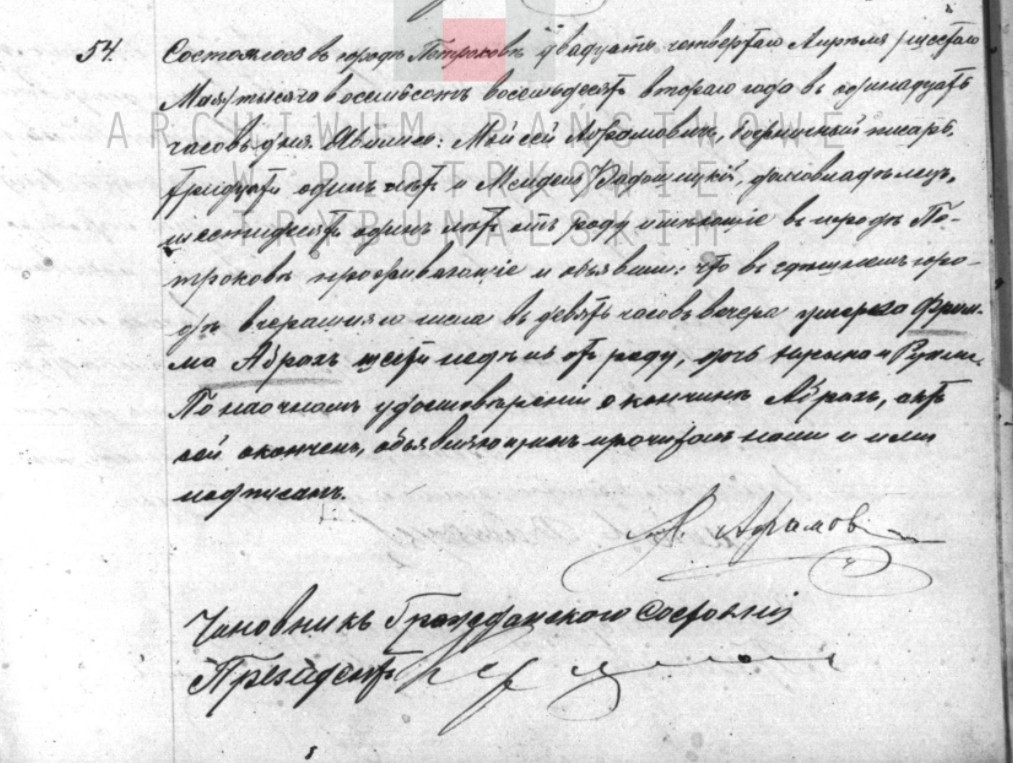 54. Состоялось въ городѣ Петроковѣ двадцать четвертаго Апрѣля /шестаго
Мая/ тысяча восемьсотъ восемьдесятъ втораго года въ одинадцать
часовъ дня. Явились: Мойсей Абрамовичъ, божничный писарь,
тридцати одинъ лѣтъ и Мендель Радошицкій, домовладѣлецъ,
шестидесятъ одинъ лѣтъ отъ роду имѣющіе въ городѣ Пе-
троковѣ проживающіе и объявили: что въ здѣшнемъ горо-
дѣ вчерашняго числа въ девять часовъ вечера умерла
Абрахъ шести недѣль отъ роду, дочь
По наочномъ удостовѣреніи о кончинѣ Абрахъ, актъ
сей оконченъ, объявляющимъ прочитанъ нами и ими
подписанъ.
Абрамов
Чиновникъ Гражданскаго Состоянія
Президентъ
ARCHIWUM PAŃSTWOWE
W PIOTRKOWIE
TRYBUNALSKIM